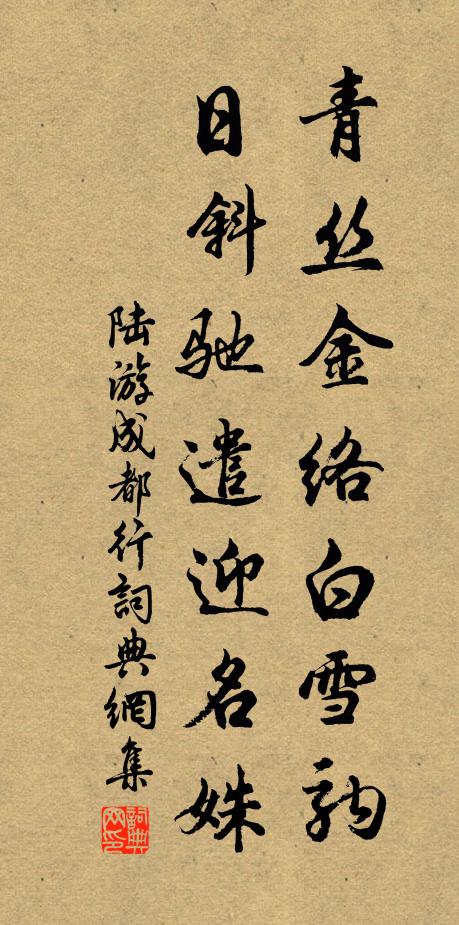 青丝金络白雪驹
日斜驰遣迎名姝
陆游成都行詞典網集
詞典网印